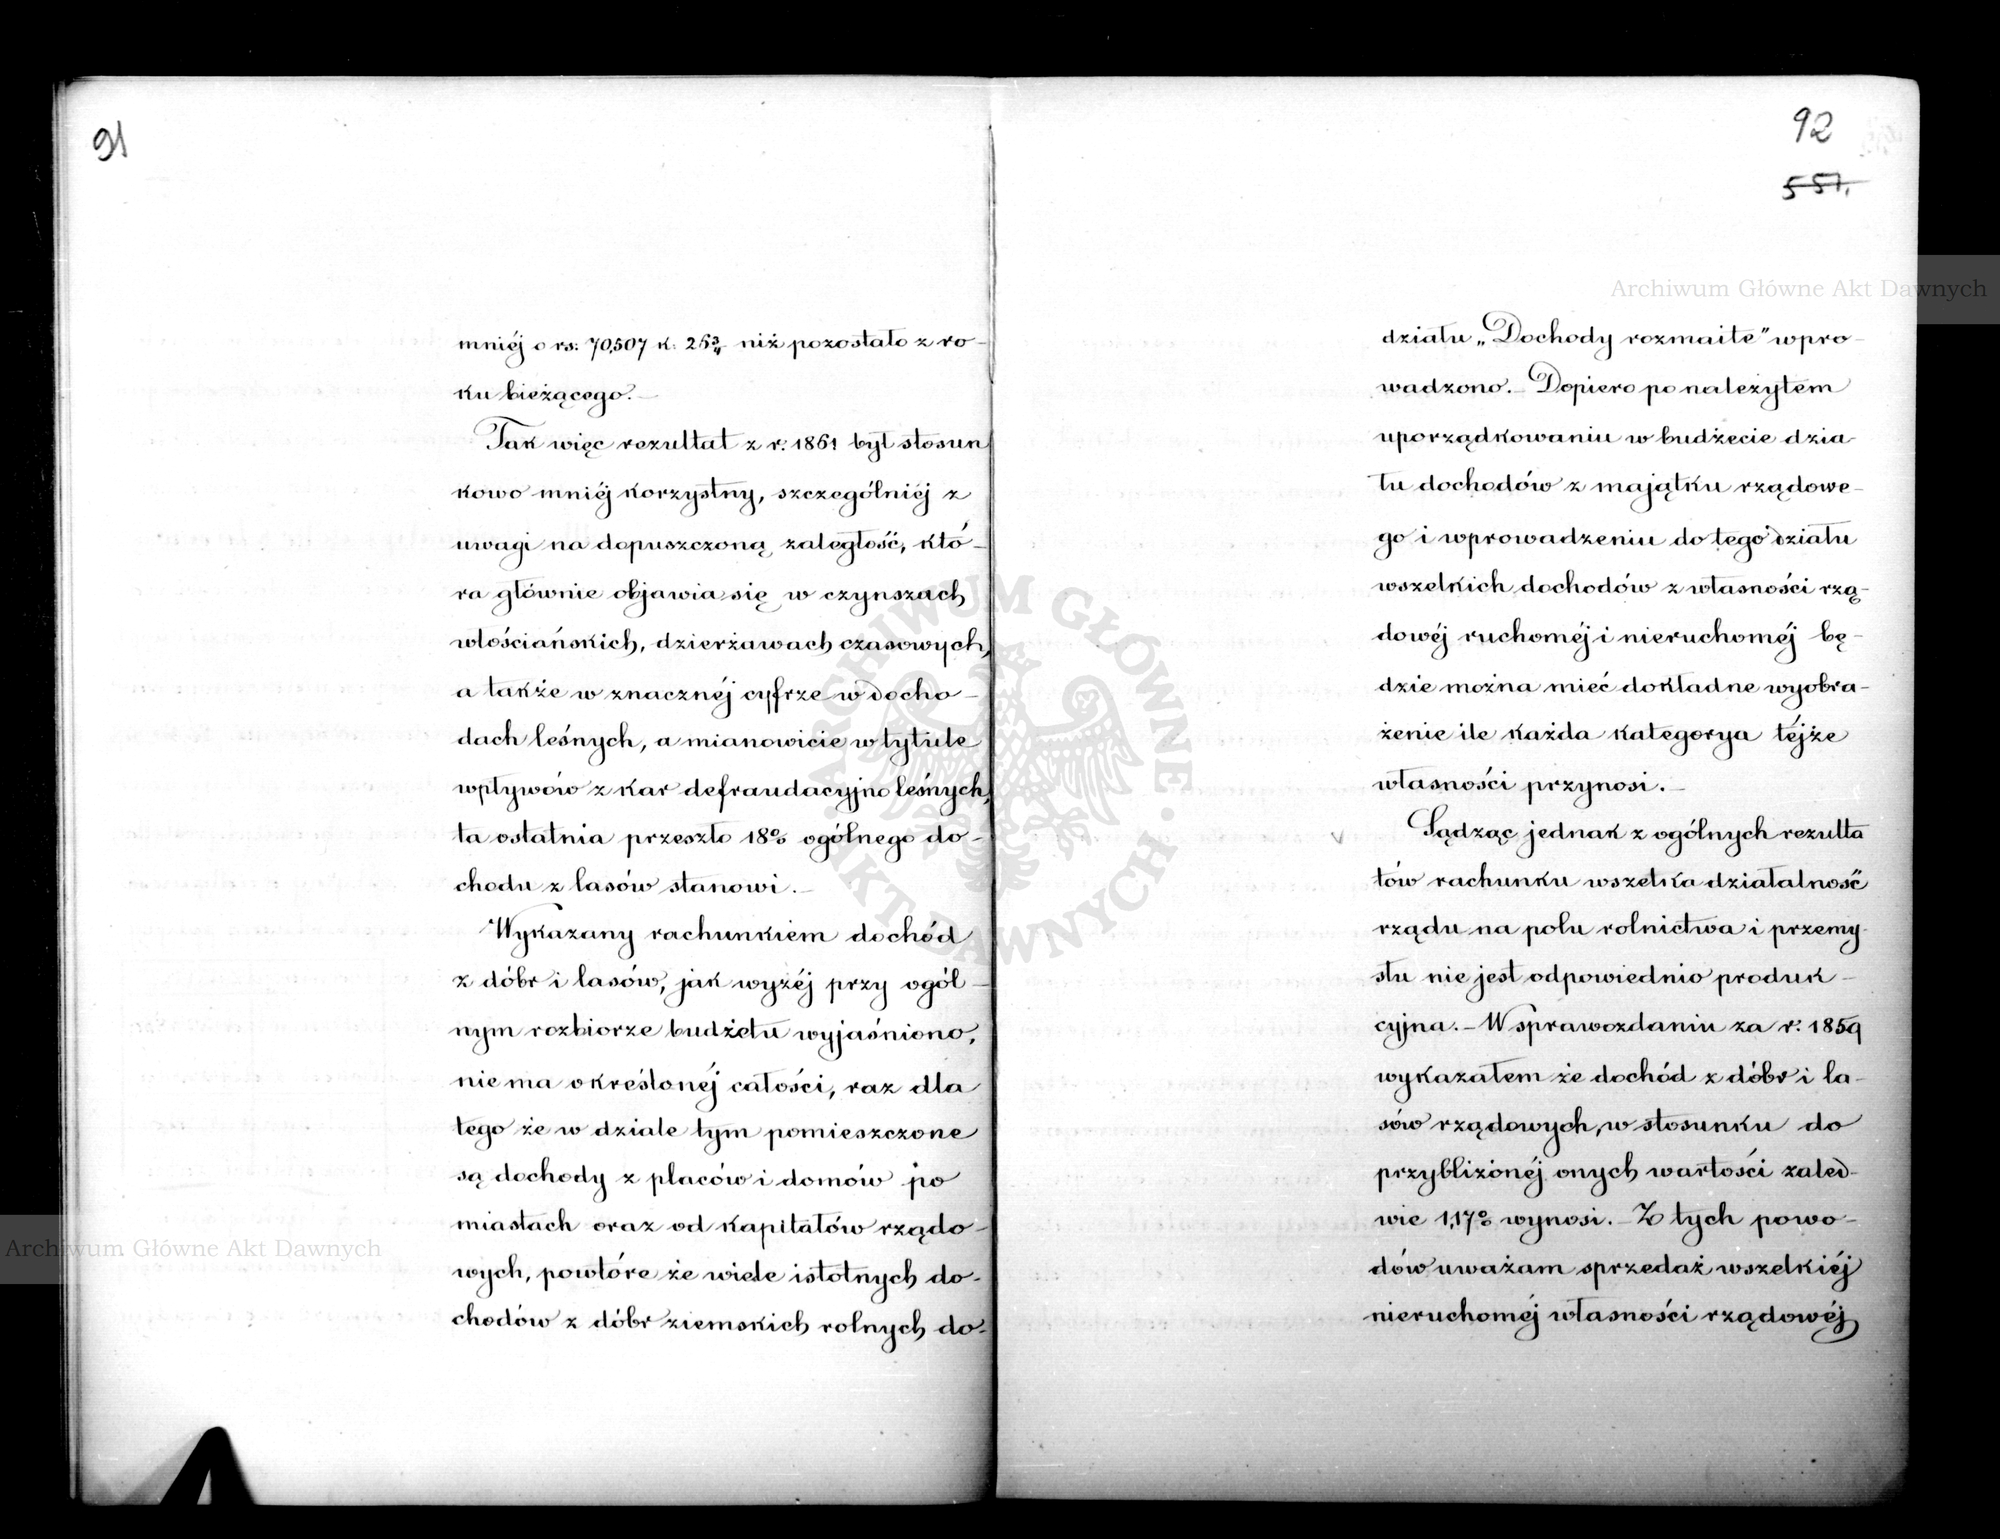 91
mniéj o rs: 70,507 k: 25¾ niż pozostało z ro-
ku bieżącego.—
Tak więc rezultat z r: 1861 był stosun
kowo mniéj korzystny, szczególniéj z
uwagi na dopuszczoną zaległość, któ-
ra głównie objawia się w czynszach
włościańskich, dzierżawach czasowych,
a także w znacznéj cyfrze w docho-
dach leśnych, a mianowicie w tytule
wpływów z kar defraudacyjno leśnych,
ta ostatnia przeszło 18% ogólnego do-
chodu z lasów stanowi.—
Wykazany rachunkiem dochód
z dóbr i lasów, jak wyżéj przy ogól-
nym rozbiorze budżetu wyjaśniono,
nie ma określonéj całości, raz dla
tego że w dziale tym pomieszczone
są dochody z placów i domów po
miastach oraz od kapitałów rządo-
wych, powtóre że wiele istotnych do-
chodów z dóbr ziemskich rolnych do-
92
557.
działu „Dochody rozmaite" wpro-
wadzono.— Dopiero po należytem
uporządkowaniu w budżecie dzia-
łu dochodów z majątku rządowe-
go i wprowadzeniu do tego działu
wszelkich dochodów z własności rzą-
dowéj ruchoméj i nieruchoméj bę-
dzie można mieć dokładne wyobra-
żenie ile każda kategorya téjże
własności przynosi.—
Sądząc jednak z ogólnych rezulta
tów rachunku wszelka działalność
rządu na polu rolnictwa i przemy-
słu nie jest odpowiednio produk-
cyjna.— W sprawozdaniu za r: 1859
wykazałem że dochód z dóbr i la-
sów rządowych, w stosunku do
przybliżonéj onych wartości zaled-
wie 1,17% wynosi.— Z tych powo-
dów uważam sprzedaż wszelkiéj
nieruchoméj własności rządowéj
Archiwum Główne Akt Dawnych
Archiwum Główne Akt Dawnych
ARCHIWUM GŁÓWNE · AKT DAWNYCH ·